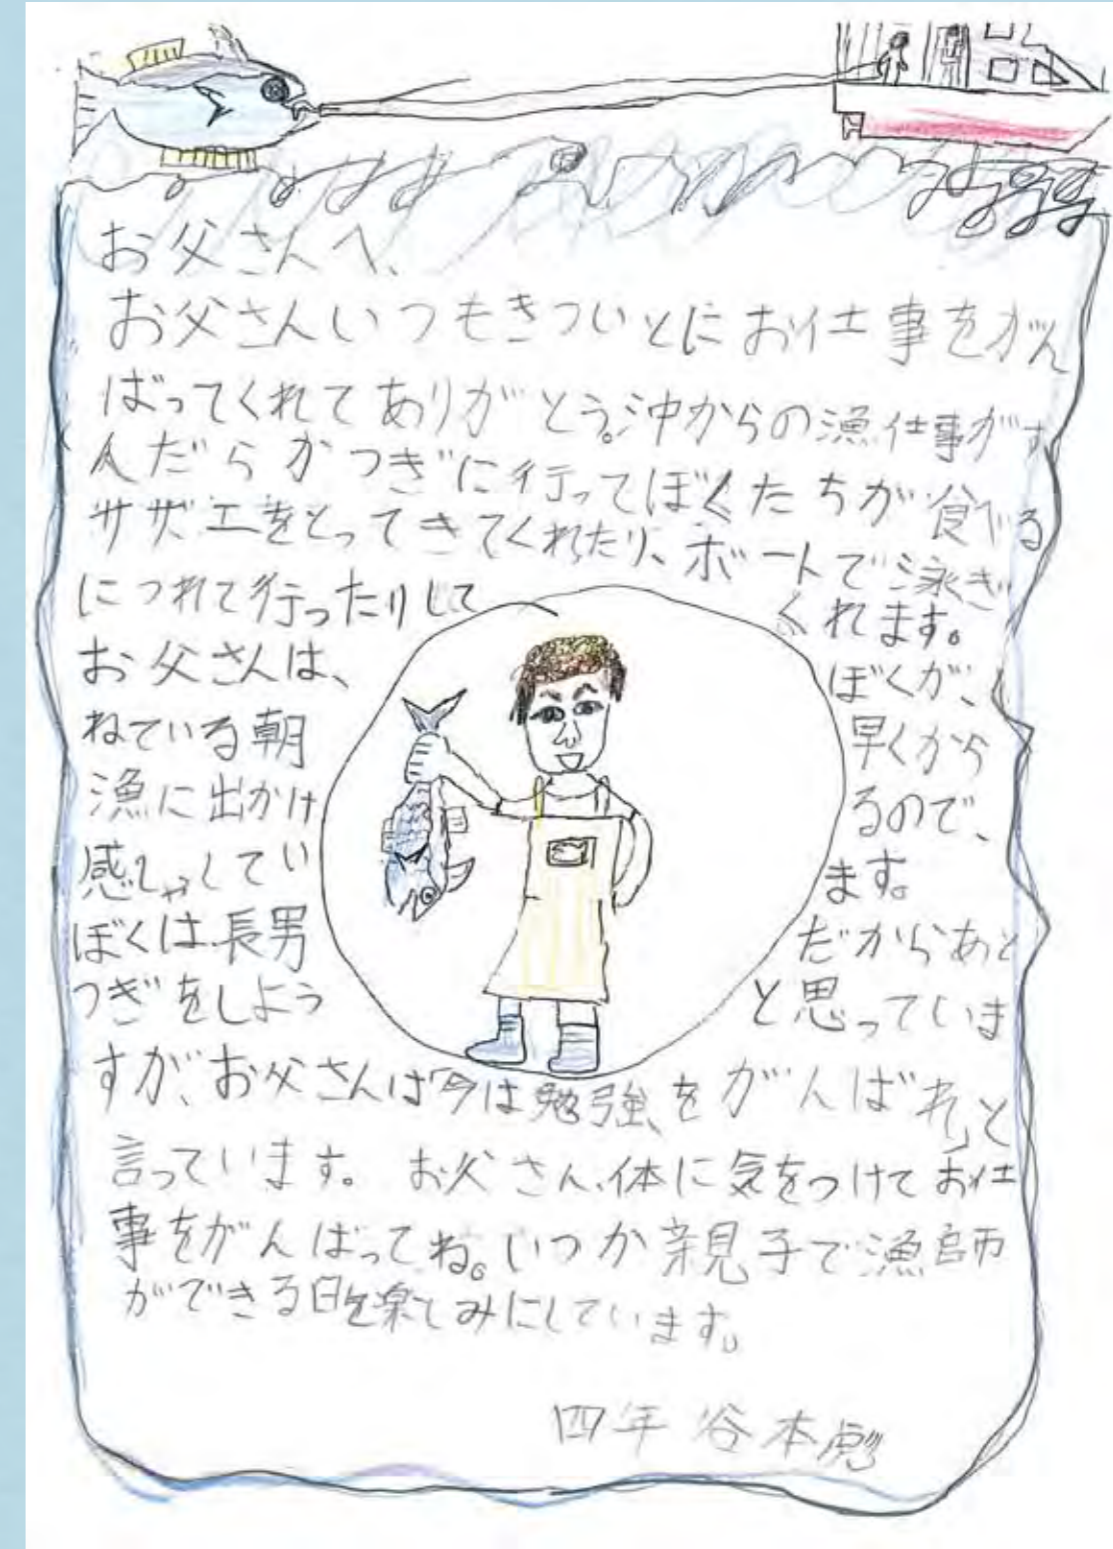 お父さんへ、
お父さんいつもきついとにお仕事をがん
ばってくれてありがとう。沖からの漁仕事がす
んだらかつぎに行ってぼくたちが食べる
サザエをとってきてくれたり、ボートで泳ぎ
につれて行ったりしてくれます。
お父さんは、ぼくが、
ねている朝早くから
漁に出かけるので、
感しゃしています。
ぼくは長男だからあと
つぎをしようと思っていま
すが、お父さんは「今は勉強をがんばれ」と
言っています。お父さん、体に気をつけてお仕
事をがんばってね。いつか親子で漁師
ができる日を楽しみにしています。
四年 谷本彪